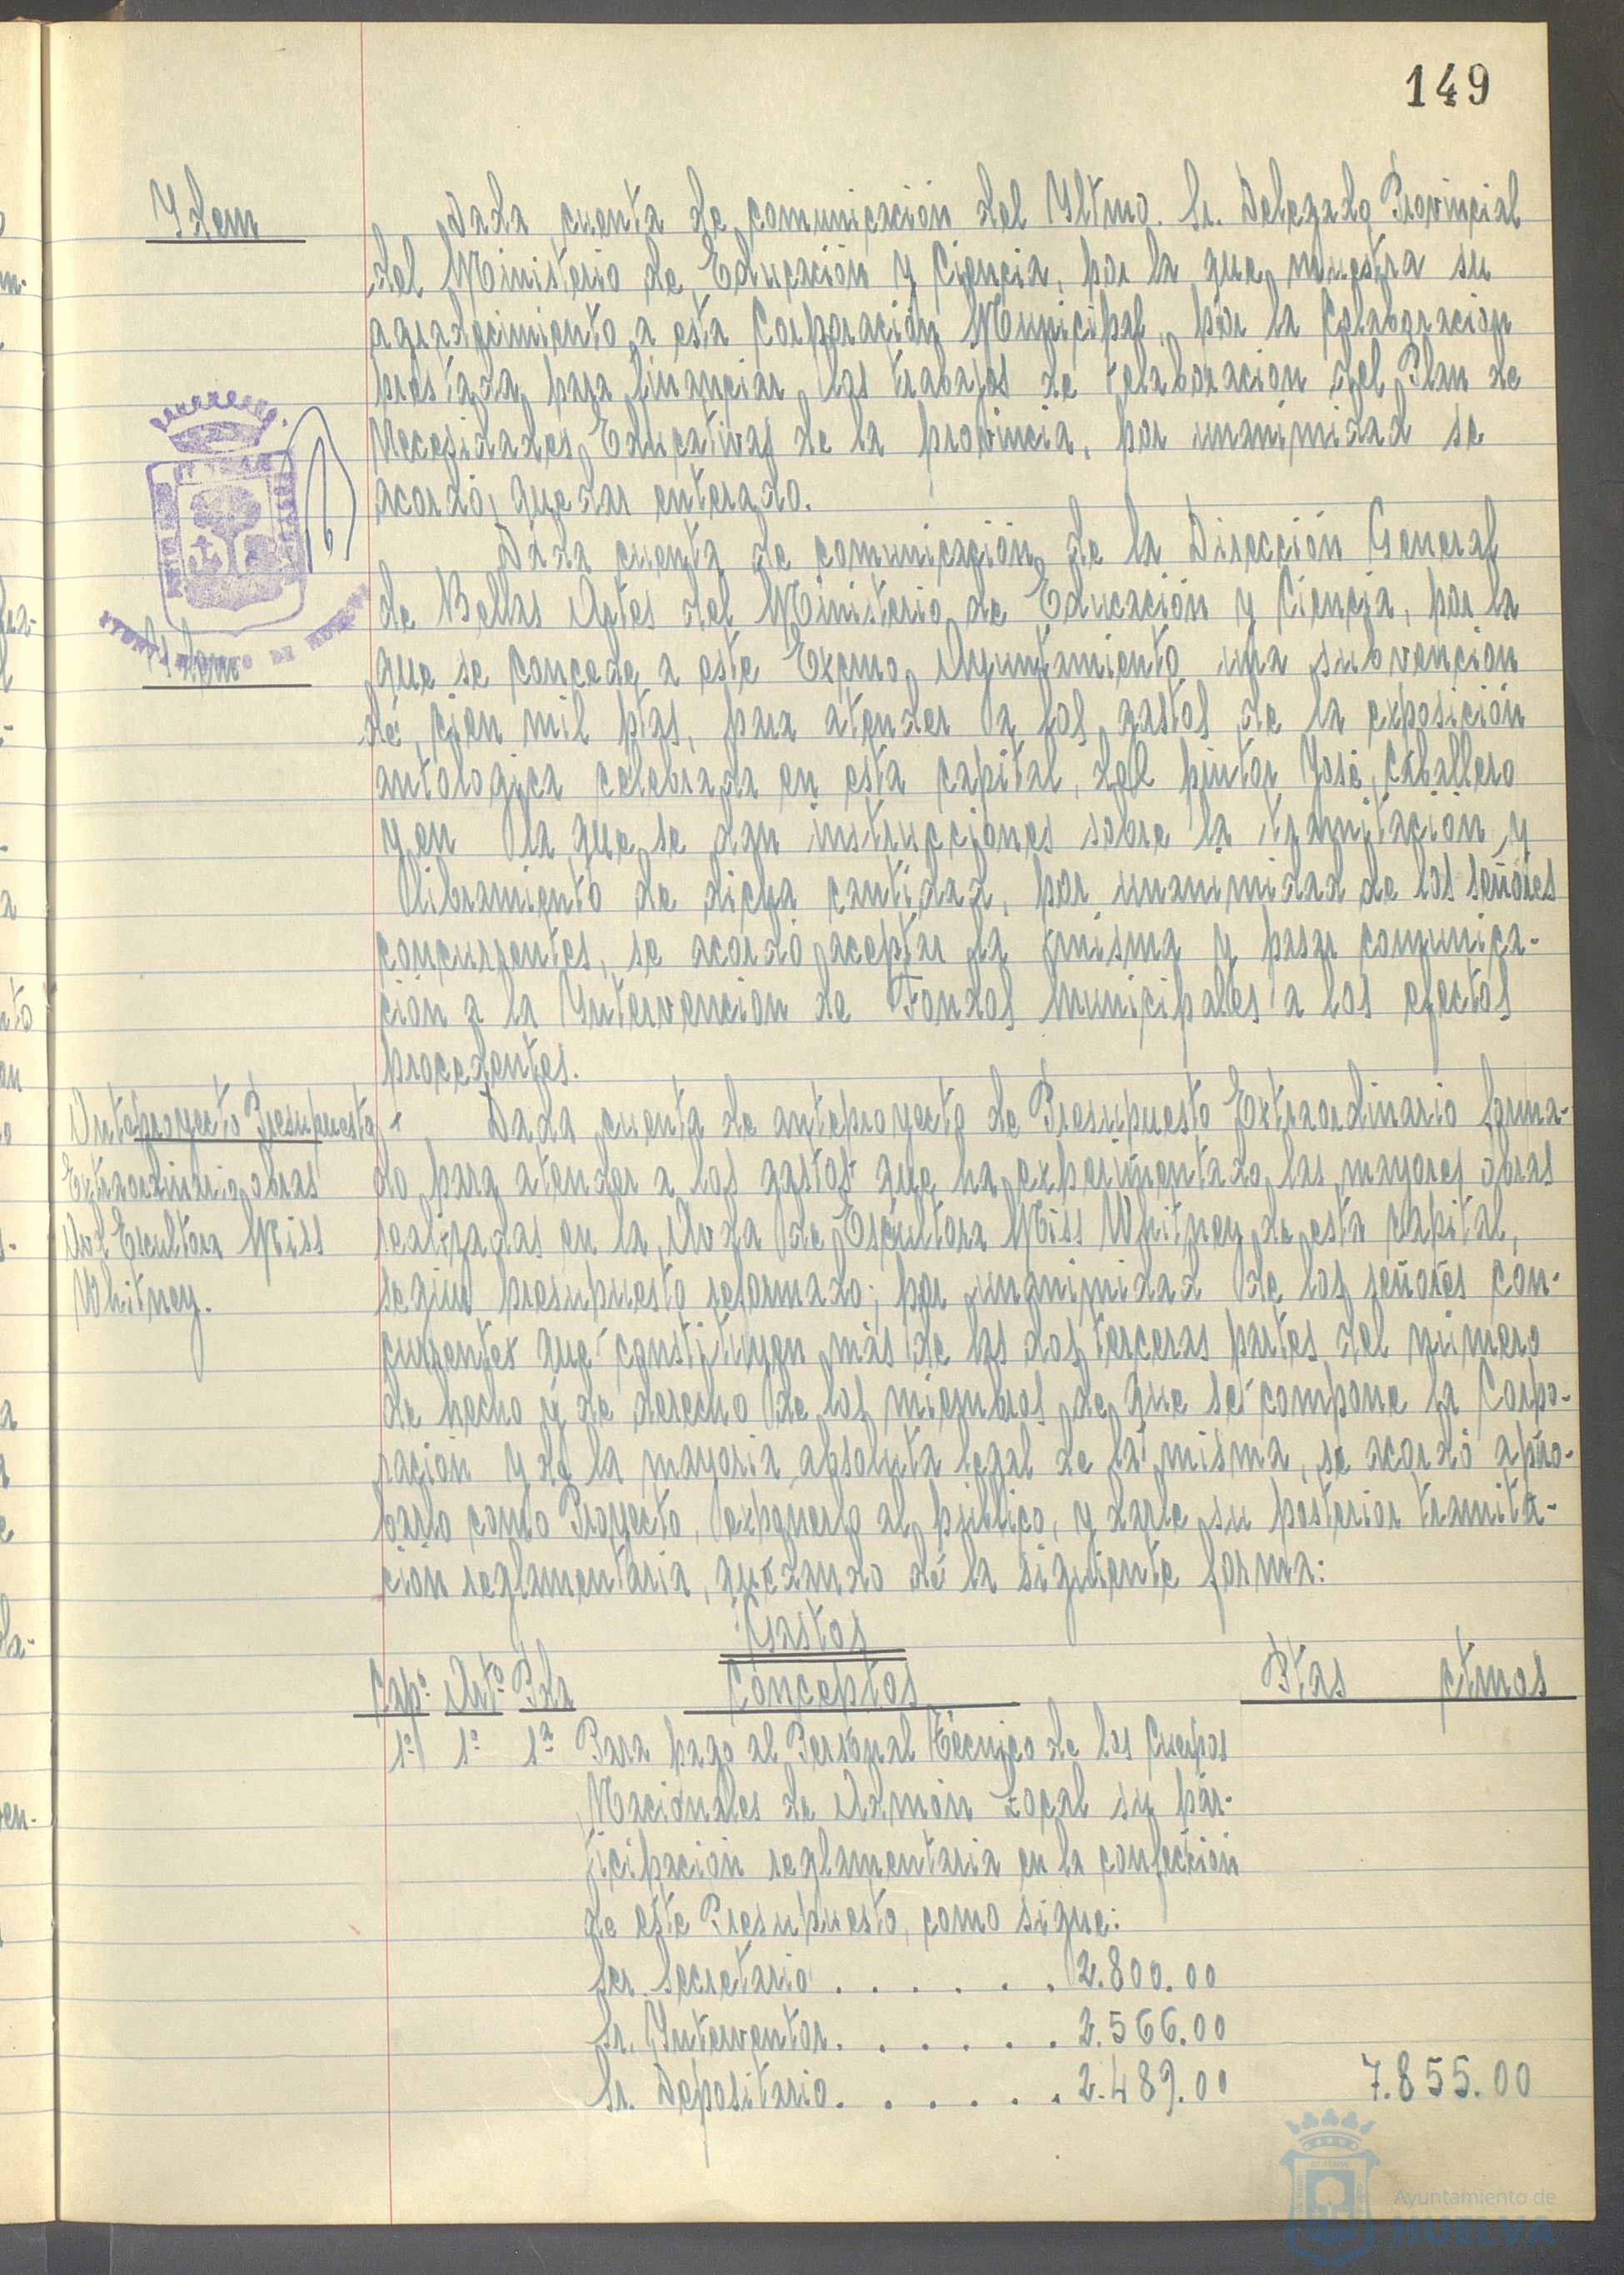 149
Idem
Dada cuenta de comunicación del Yltmo. Sr. Delegado Provincial
del Ministerio de Educación y Ciencia, por la que muestra su
agradecimiento a esta Corporación Municipal, por la Colaboración
prestada para financiar los trabajos de elaboración del Plan de
Necesidades Educativas de la provincia, por unanimidad se
acordó, quedar enterado.
Idem
Dada cuenta de comunicación de la Dirección General
de Bellas Artes del Ministerio de Educación y Ciencia, por la
que se concede a este Excmo. Ayuntamiento una subvención
de cien mil ptas, para atender a los gastos de la exposición
antologica celebrada en esta capital, del pintor José Caballero
y en la que se dan instrucciones sobre la tramitación y
libramiento de dicha cantidad, por unanimidad de los señores
concurrentes, se acordó aceptar la misma y pasar comunica-
ción a la Yntervención de Fondos Municipales a los efectos
procedentes.
Anteproyecto Presupuesto
Extraordinario obras
Avd Escultora Miss
Whitney.
Dada cuenta de anteproyecto de Presupuesto Extraordinario forma-
do para atender a los gastos que ha experimentado las mayores obras
realizadas en la Avda de Escultora Miss Whitney de esta capital,
según presupuesto reformado; por unanimidad de los señores con-
currentes que constituyen más de las dos terceras partes del número
de hecho y de derecho de los miembros de que se compone la Corpo-
ración y de la mayoria absoluta legal de la misma, se acordó apro-
barlo como Proyecto, exponerlo al público, y darle su posterior tramita-
ción reglamentaria, quedando de la siguiente forma:
Gastos
Capº Artº Pda Conceptos Ptas ctmos
1º 1º 1ª Para pago al Personal Técnico de los Cuerpos
Nacionales de Admón Local su par-
ticipación reglamentaria en la confección
de este Presupuesto, como sigue:
Ser. Secretario . . . . . . 2.800.00
Sr. Ynterventor. . . . . . 2.566.00
Sr. Depositario. . . . . . 2.489.00 7.855.00
Ayuntamiento de
HUELVA